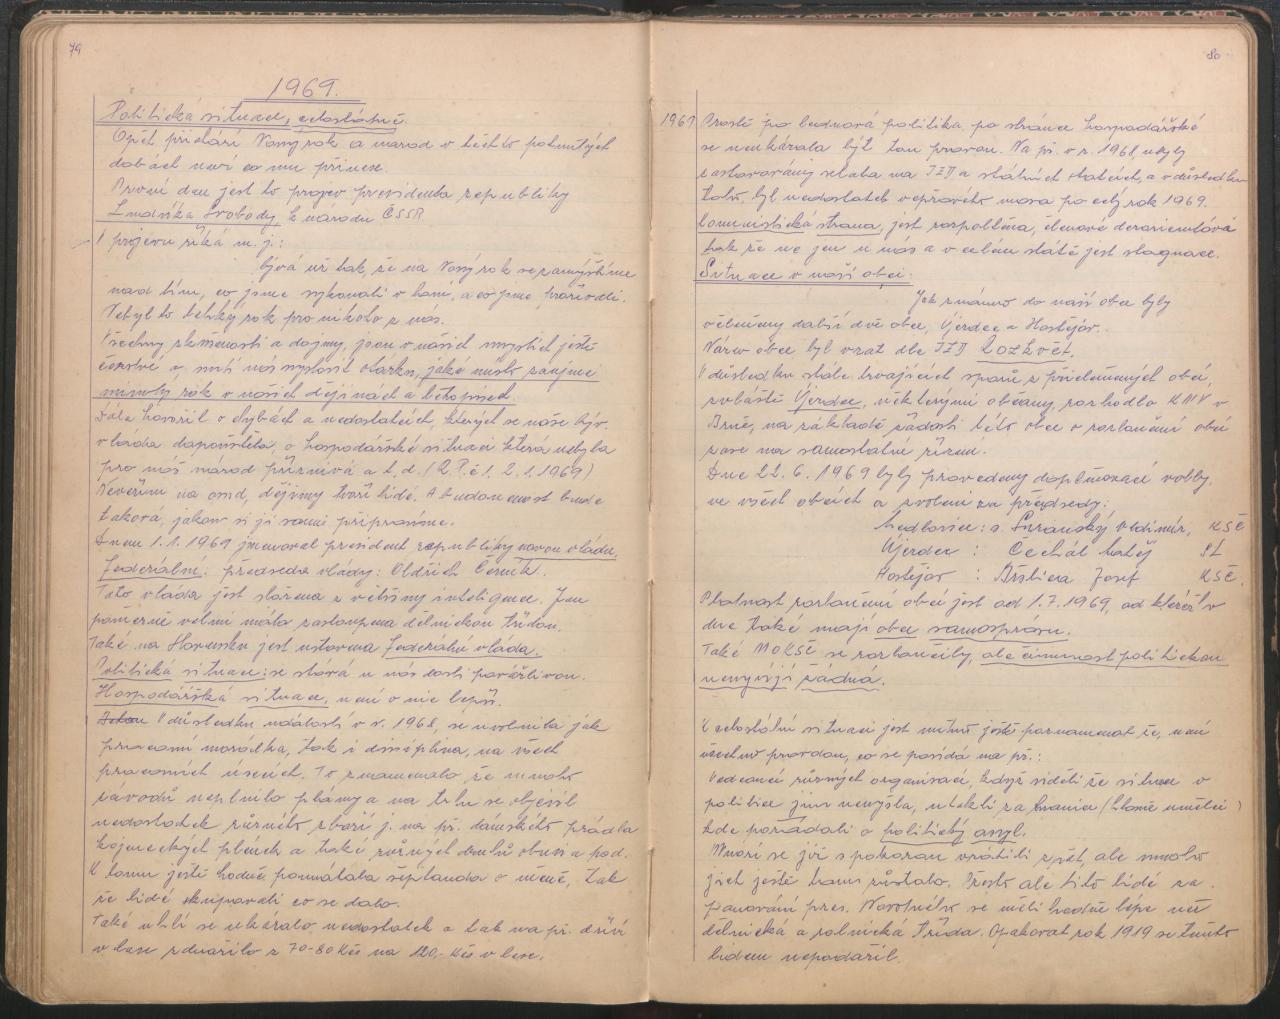 79
1969.
Politická situace, celostátně.
Opět přichází Nový rok a národ v těchto pohnutých
dobách neví co mu přinese.
První den jest to projev presidenta republiky
Ludvíka Svobody k národu ČSSR
V projevu říká m. j.:
bývá už tak že na Nový rok se zamýšlíme
nad tím, co jsme vykonali v loni, a co jsme prožívali.
Nebyl to lehký rok pro nikoho z nás.
Všechny zkušenosti a dojmy, jsou v našich myslích ještě
čerstvé a, nutí nás myslit otázku, jaké místo zaujme
minulý rok v našich dějinách a letopisech.
Dále hovořil o chybách a nedostatcích, kterých se naše býv.
vláda dopouštěla, o hospodářské situaci která nebyla
pro náš národ příznivá a t. d. (R. P. č 1. 2.1.1969)
Nevěřím na osud, dějiny tvoří lidé. A budoucnost bude
taková, jakou si ji sami připravíme.
Dnem 1.1.1969 jmenoval president republiky novou vládu,
Federální: předseda vlády: Oldřich Černík.
Tato vláda jest složena z většiny inteligence. Jen
poměrně velmi málo zastoupena dělnickou třídou.
Také na Slovensku jest ustavena Federální vláda.
Politická situace: se stává u nás dosti povážlivou.
Hospodářská situace, není o nic lepší.
V důsledku událostí v r. 1968, se uvolnila jak
pracovní morálka, tak i disciplina, na všech
pracovních úsecích. To znamenalo že mnoho
závodů neplnilo plány a na trhu se objevil
nedostatek různého zboží j. na př. dámského prádla
kojeneckých plének a také různých druhů obuvi a pod.
K tomu ještě hodně pomáhala šeptanda o měně, tak
že lidé skupovali co se dalo.
Také uhlí se ukázalo nedostatek a tak na př. dříví
v lese zdražilo z 70-80 Kčs na 120,- Kčs v lese.
80
1969 Prostě po lednová politika po stránce hospodářské
se neukázala býti tou pravou. Na př. v r. 1968 nebyly
zastavovány selata na JZD a státních statcích, a v důsledku
toho, byl nedostatek vepřového masa po celý rok 1969.
Komunistická strana, jest rozpolcena, členové dezorientováni
tak že ne jen u nás a v celém státě jest stagnace.
Situace v naší obci:
Jak známo do naší obce byly
včleněny další dvě obce, Újezdec a Hostějov.
Název obce byl vzat dle JZD Rozkvět.
V důsledku stále trvajících sporů z přičleněných obcí,
zvláště Újezdec, některými občany, rozhodlo KNV v
Brně, na základě žádosti této obce o rozloučení obcí
zase na samostatné řízení.
Dne 22. 6. 1969 byly provedeny doplňovací volby,
ve všech obcích a zvoleni za předsedy:
Medlovice: s. Vladimír, KSČ
Újezdec : Čechál Matěj SL
Hostějov : Josef KSČ.
Platnost rozloučení obcí jest od 1.7.1969, od kteréhož
dne také mají obce samosprávu.
Také MOKSČ se rozloučily, ale činnost politickou
nevyvíjí žádná.
K celostátní situaci jest nutno ještě poznamenat že, není
všechno pravdou, co se povídá na př.:
Vedoucí různých organisací, když viděli že situace v
politice jim nevyšla, utekli za hranice (hlavně umělci)
kde požádali o politický asyl.
Mnozí se již s pokorou vrátili zpět, ale mnoho
jich ještě tam zůstalo. Přesto ale tito lidé za
panování pres. Novotného se měli hodně lépe než
dělnická a rolnická třída. Opakovat rok 1919 se těmto
lidem nepodařil.